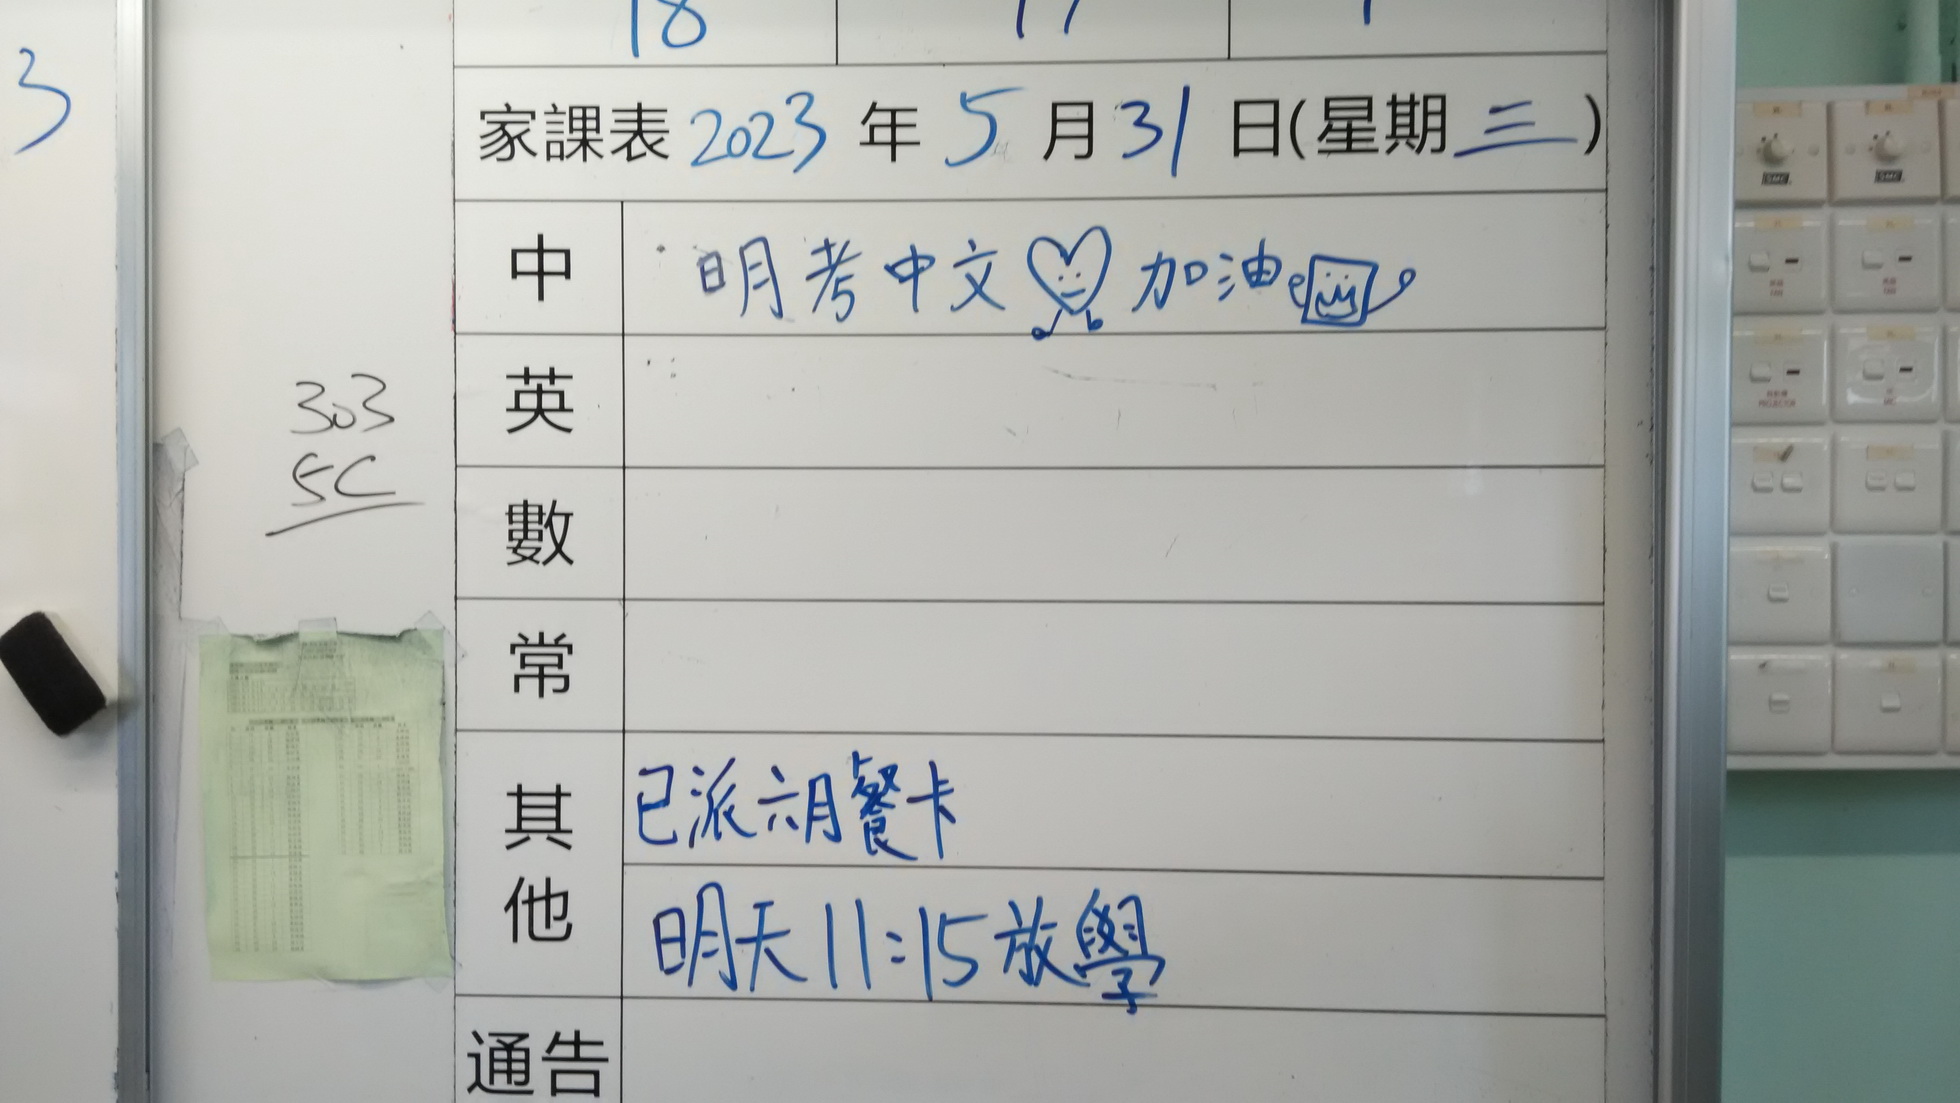 3
18 17
家課表 2023 年 5 月 31 日(星期三)
中 明考中文 加油
英
303
5C
數
常
其他 已派六月餐卡
明天11:15放學
通告